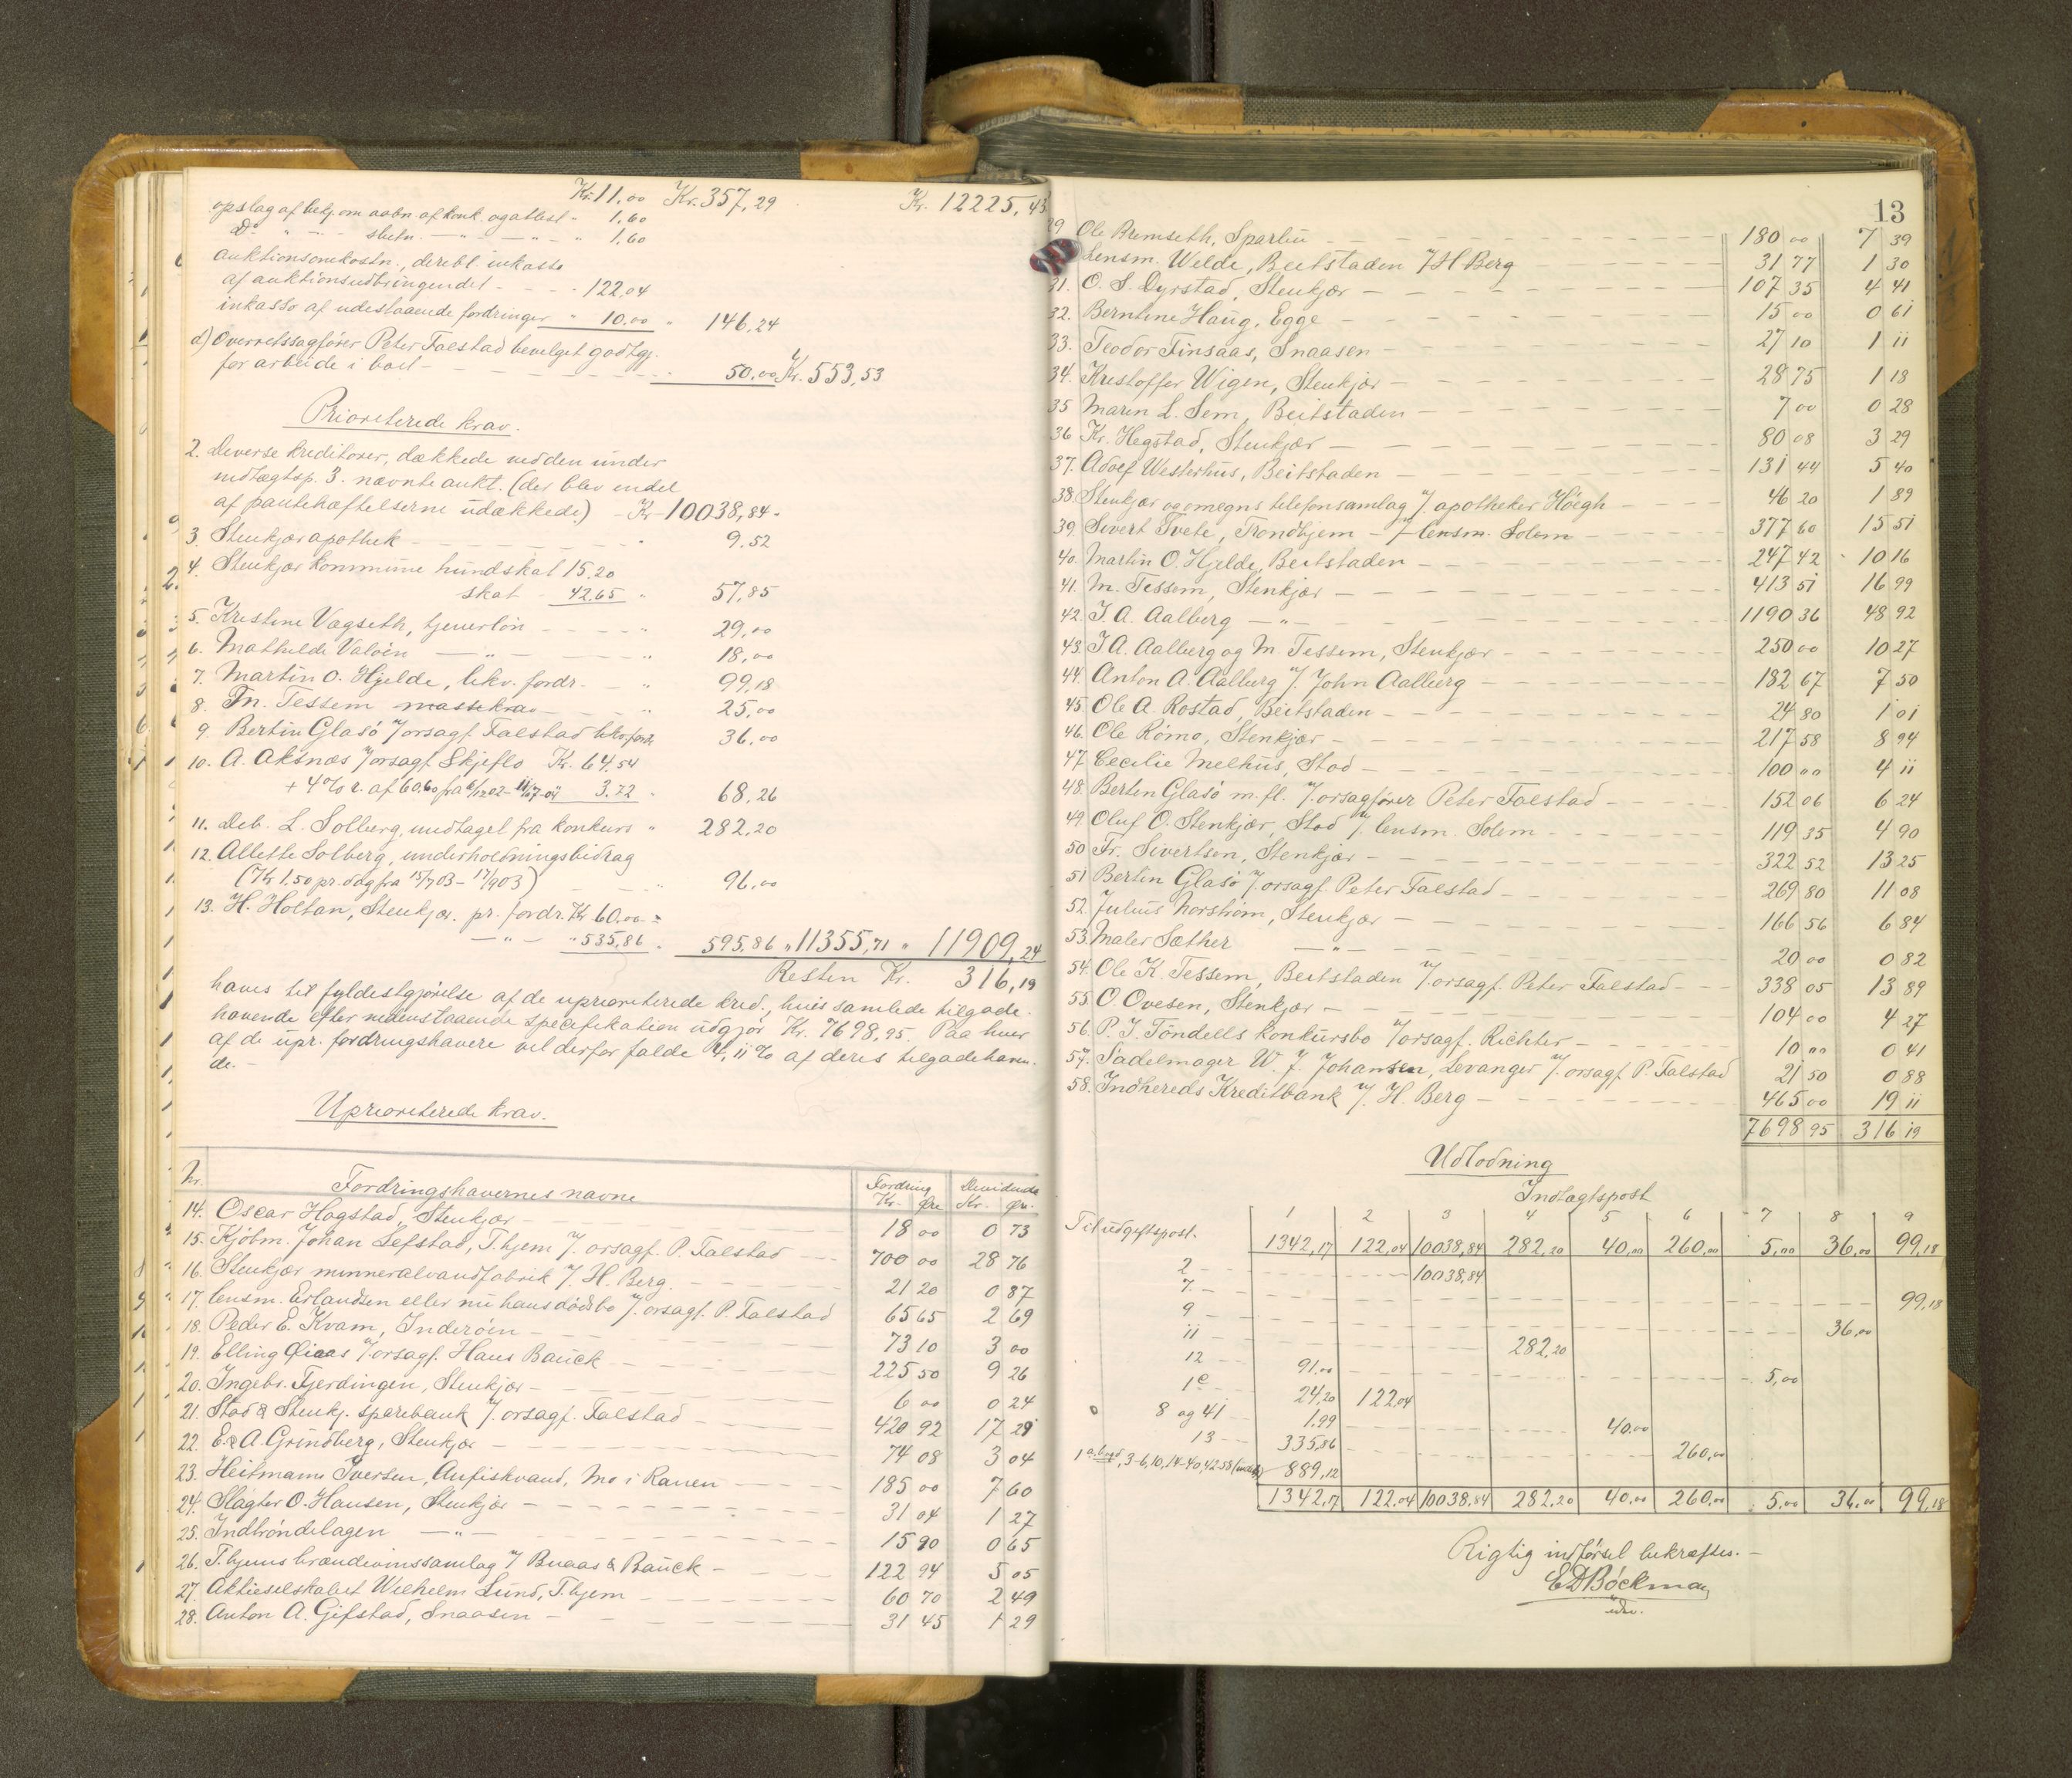 Kr. 11,00 Kr. 357,29 Kr. 12225,43
opslag af bekj. om aabn. af konk. og attest - 1,60
Do " - " - slutn. - " - " - " 1,60
Auktionsomkostn., deribl. inkasso
af auktionsudbringendet - - - 122,04
inkasso af udestaaende fordringer " 10,00 " 146,24
d) Overretssagfører Peter Falstad bevilget godtgj.
for arbeide i boet - 50,00 Kr. 553,53
Prioriterede krav.
2. Diverse kreditorer, dækkede ved den under
indtægtsp. 3. nævnte aukt. (der blev endel
af pantehæftelserne udækkede) - Kr 10038,84
3. Stenkjær apothek - " 9,52
4. Stenkjær kommune hundskat 15,20
skat 42,65 " 57,85
5. Kristine Vægseth, tjenerløn - " 29,00
6. Mathilde Valøen - " - " 18,00
7. Martin O. Hjelde, likv. fordr. - " 99,18
8. M. Tessem massekrav - " 25,00
9. Bertin Glasø v/orsagf. Falstad likv. fordr. 36,00
10. A. Aksnæs v/orsagf. Skjeflo Kr. 64,54
+ 4% r. af 60,60 fra 6/1202 - 11/6-04 3,72 " 68,26
11. Deb. L. Solberg, undtaget fra konkurs " 282,20
12. Allette Solberg, underholdningsbidrag
(Kr 1,50 pr. dag fra 15/703 - 17/903) - " 96,00
13. H. Holtan, Stenkjær. pr. fordr. Kr 60,00
- " - " 535,86 " 595,86 " 11355,71 " 11909,24
Resten Kr. 316,19
haves til fyldestgjørelse af de uprioriterede kred., huis samlede tilgode-
havende efter nedenstaaende specifikation udgjør Kr. 7698,95. Paa hver
af de upr. fordringshavere vil derfor falde 4,11% af deres tilgodehaven-
de. -
Uprioriterede krav.
Nr. Fordringshavernes navne Fordring Kr. Øre Dividende Kr. Øre
14. Oscar Hagstad, Stenkjær - 18 00 0 73
15. Kjøbm. Johan Lefstad, T.hjem v/. orsagf. P. Falstad - 700 00 28 76
16. Stenkjær minneralvandfabrik v/. H. Berg - 21 20 0 87
17. Lensm. Erlandsen eller nu hans dødsbo v/. orsagf. P. Falstad 65 65 2 69
18. Peder E. Kvam, Inderøen - 73 10 3 00
19. Elling Øiaas v/orsagf. Hans Bauck - 225 50 9 26
20. Ingebr. Fjerdingen, Stenkjær - 6 00 0 24
21. Stod & Stenkj. sparebank v/. orsagf. Falstad - 420 92 17 29
22. E. & A. Grindberg, Stenkjær - 74 08 3 04
23. Heitmann Iversen, Anfiskvand, Mo i Ranen - 185 00 7 60
24. Slagter O. Hansen, Stenkjær - 31 04 1 27
25. Indtrøndelagen - " - 15 90 0 65
26. T.hjems brændevinssamlag v/ Buaas & Bauck - 122 94 5 05
27. Aktieselskabet Wilhelm Lund, T.hjem - 60 70 2 49
28. Anton A. Gifstad, Snaasen - 31 45 1 29
13
29 Ole Bremseth, Sparbu - 180 00 7 39
Lensm. Welde, Beitstaden v/ H Berg 31 77 1 30
31. O. S. Dyrstad, Stenkjær - 107 35 4 41
32. Berntine Haug, Egge - 15 00 0 61
33. Teodor Finsaas, Snaasen - 27 10 1 11
34. Kristoffer Wigen, Stenkjær - 28 75 1 18
35 Maren L. Sem, Beitstaden - 7 00 0 28
36 Kr. Hegstad, Stenkjær - 80 08 3 29
37. Adolf Westerhus, Beitstaden - 131 44 5 40
38. Stenkjær og omegns telefonsamlag v/ apotheker Høegh - 46 20 1 89
39. Sivert Tvete, Trondhjem - v/ lensm. Solem - 377 60 15 51
40. Martin O. Hjelde, Beitstaden - 247 42 10 16
41. M. Tessem, Stenkjær - 413 51 16 99
42. J. A. Aalberg - " - 1190 36 48 92
43. J A. Aalberg og M Tessem, Stenkjær - 250 00 10 27
44. Anton A. Aalberg v/. John Aalberg - 182 67 7 50
45. Ole A. Rostad, Beitstaden - 24 80 1 01
46. Ole Rømo, Stenkjær - 217 58 8 94
47 Cecilie Melhus, Stod - 100 00 4 11
48. Bertin Glasø m. fl. v/. orsagfører Peter Falstad - 152 06 6 24
49 Oluf O. Stenkjær, Stod v/. lensm. Solem - 119 35 4 90
50 Fr. Sivertsen, Stenkjær - 322 52 13 25
51 Bertin Glasø v/. orsagf. Peter Falstad - 269 80 11 08
52. Julius Norstrøm, Stenkjær - 166 56 6 84
53. Maler Sæther - " - 20 00 0 82
54. Ole K. Tessem, Beitstaden v/orsagf. Peter Falstad - 338 05 13 89
55. O. Ovesen, Stenkjær - 104 00 4 27
56. P. J. Tøndells konkursbo v/orsagf. Richter - 10 00 0 41
57. Sadelmager W. J. Johansen, Levanger v/. orsagf. P. Falstad 21 50 0 88
58. Indhereds Kreditbank v/. H. Berg - 465 00 19 11
7698 95 316 19
Udlodning
Indtægtspost
Til udgiftspost. 1 2 3 4 5 6 7 8 9
1342,17 122,04 10038,84 282,20 40,00 260,00 5,00 36,00 99,18
2 - 10038,84
7 - 99,18
9 - 36,00
11 - 282,20
12 - 91,00 5,00
1c - 24,20 122,04
8 og 41 1,99 40,00
13 - 335,86 260,00
1 a, b og d, 3-6, 10, 14-40, 42-58 889,12
1342,17 122,04 10038,84 282,20 40,00 260,00 5,00 36,00 99,18
Rigtig indførsel bekræftes. -
E D Bøckman